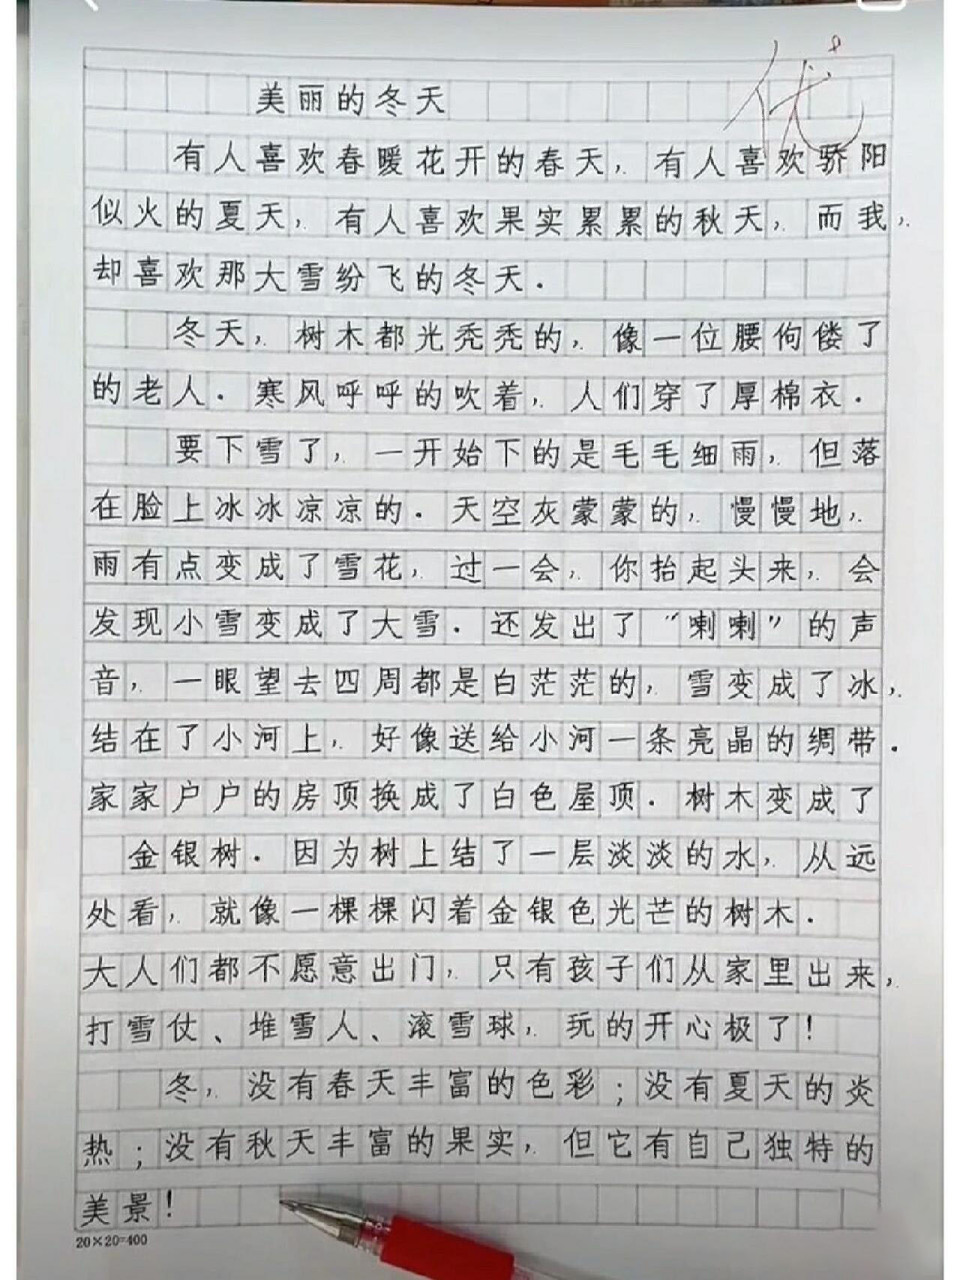 优
美丽的冬天
有人喜欢春暖花开的春天，有人喜欢骄阳
似火的夏天，有人喜欢果实累累的秋天，而我，
却喜欢那大雪纷飞的冬天．
冬天，树木都光秃秃的，像一位腰佝偻了
的老人．寒风呼呼的吹着，人们穿了厚棉衣．
要下雪了，一开始下的是毛毛细雨，但落
在脸上冰冰凉凉的．天空灰蒙蒙的，慢慢地，
雨有点变成了雪花，过一会，你抬起头来，会
发现小雪变成了大雪．还发出了“喇喇”的声
音，一眼望去四周都是白茫茫的，雪变成了冰，
结在了小河上，好像送给小河一条亮晶的绸带．
家家户户的房顶换成了白色屋顶．树木变成了
金银树．因为树上结了一层淡淡的水，从远
处看，就像一棵棵闪着金银色光芒的树木．
大人们都不愿意出门，只有孩子们从家里出来，
打雪仗、堆雪人、滚雪球，玩的开心极了！
冬，没有春天丰富的色彩；没有夏天的炎
热；没有秋天丰富的果实，但它有自己独特的
美景！
20×20=400